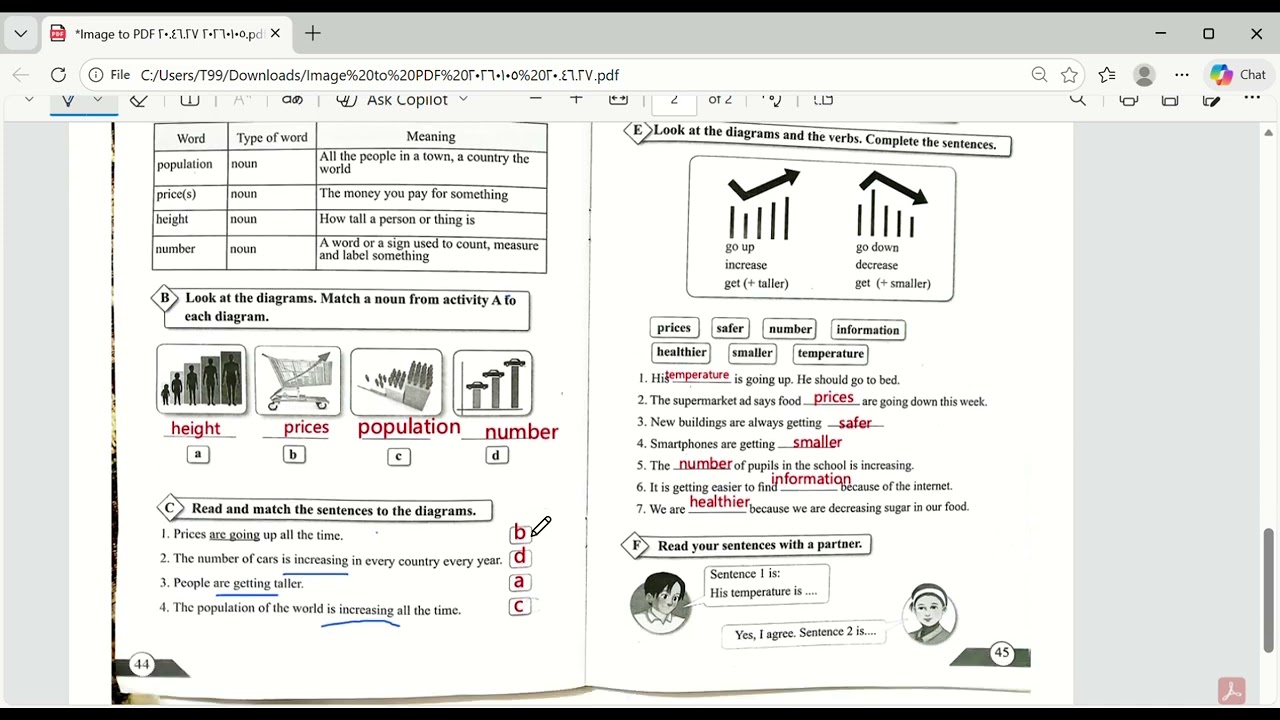 *Image to PDF ٢٠٢٦٠١٠٥ ٢٠.٤٦.٢٧.pd
File
C:/Users/T99/Downloads/Image%20to%20PDF%20٢٠٢٦٠١٠٥%20٢٠.٤٦.٢٧.pdf
Chat
Ask Copilot
2
of 2
Word Type of word Meaning
population noun All the people in a town, a country the
world
price(s) noun The money you pay for something
height noun How tall a person or thing is
number noun A word or a sign used to count, measure
and label something
B Look at the diagrams. Match a noun from activity A to
each diagram.
height prices population number
a b c d
C Read and match the sentences to the diagrams.
1. Prices are going up all the time. b
2. The number of cars is increasing in every country every year. d
3. People are getting taller. a
4. The population of the world is increasing all the time. c
44
E Look at the diagrams and the verbs. Complete the sentences.
go up go down
increase decrease
get (+ taller) get (+ smaller)
prices safer number information
healthier smaller temperature
1. His temperature is going up. He should go to bed.
2. The supermarket ad says food prices are going down this week.
3. New buildings are always getting safer
4. Smartphones are getting smaller
5. The number of pupils in the school is increasing.
6. It is getting easier to find information because of the internet.
7. We are healthier because we are decreasing sugar in our food.
F Read your sentences with a partner.
Sentence 1 is:
His temperature is ....
Yes, I agree. Sentence 2 is....
45